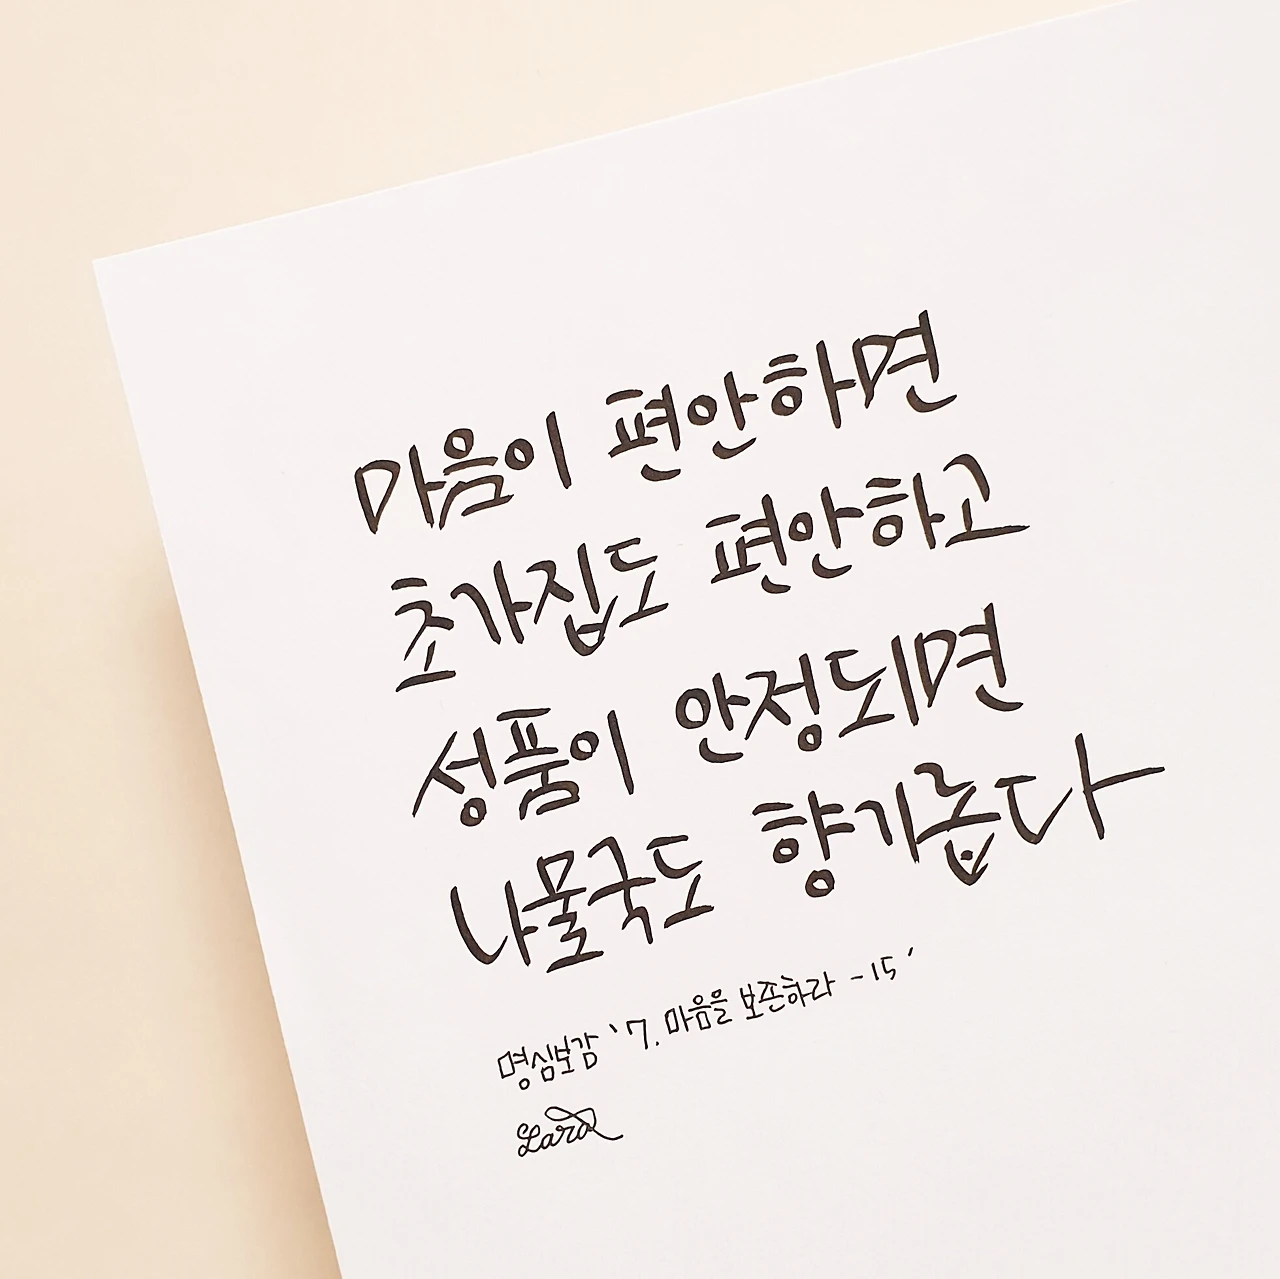 마음이 편안하면
초가집도 편안하고
성품이 안정되면
나물국도 향기롭다
명심보감 '7. 마음을 보존하라 -15'
Lara